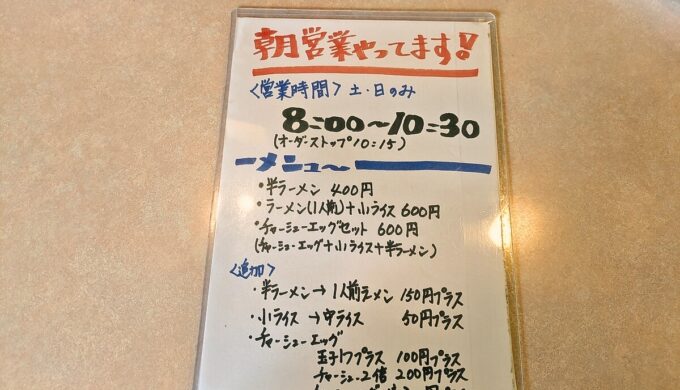 朝営業やってます!
〈営業時間〉土・日のみ
8:00〜10:30
(オーダーストップ10:15)
ーメニュ〜
・半ラーメン 400円
・ラーメン(1人前)+小ライス 600円
・チャーシューエッグセット 600円
(チャーシューエッグ+小ライス+半ラーメン)
〈追加〉
・半ラーメン→1人前ラーメン 150円プラス
・小ライス→中ライス 50円プラス
・チャーシューエッグ
玉子1つプラス 100円プラス
チャーシュー2倍 200円プラス